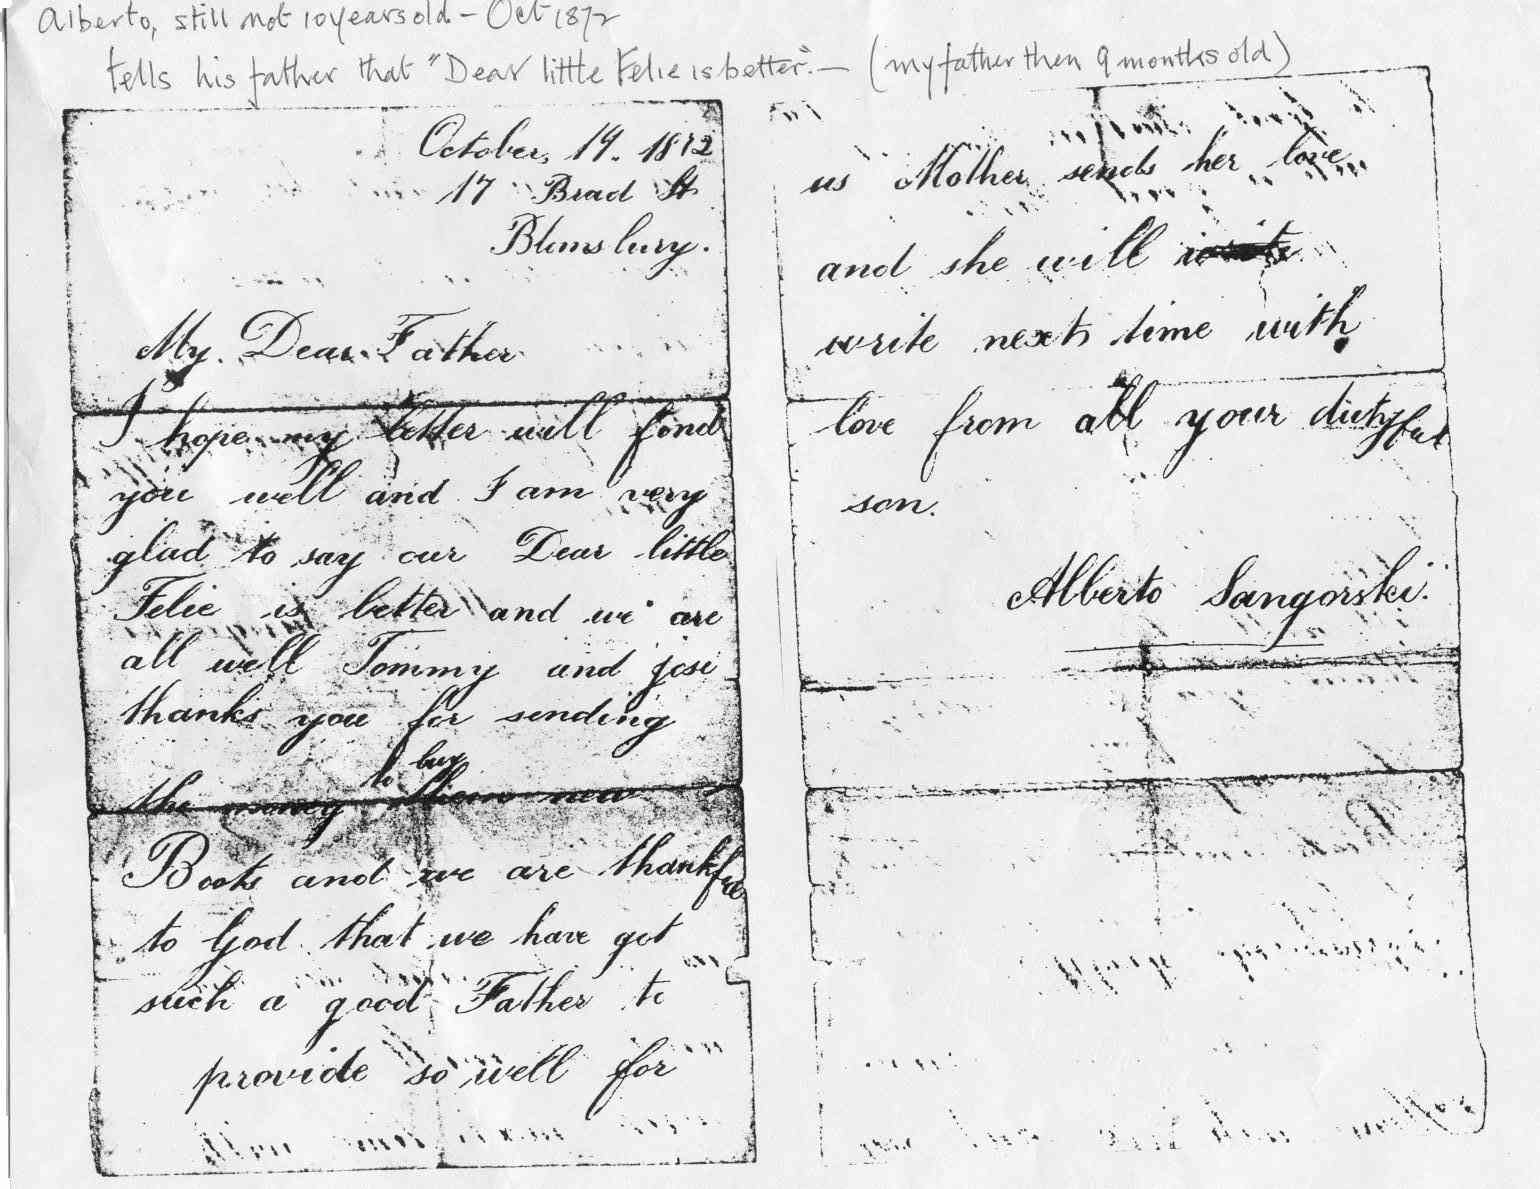 Alberto, still not 10 years old – Oct 1872
tells his father that "Dear little Felie is better." — (my father then 9 months old)
October, 19. 1872
17 Broad St
Blomsbury.
My. Dear. Father.
I hope my letter will fond
you well and I am very
glad to say our Dear little
Felie is better and we are
all well Tommy and josi
thanks you for sending
to buy
the money them new
Books and we are thankful
to God that we have got
such a good Father to
provide so well for
us Mother sends her love
and she will write
write next time with
love from all your dutyful
son.
Alberto Sangorski.